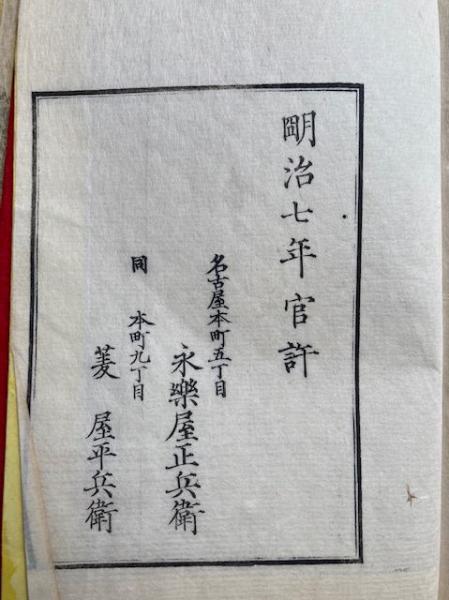 明治七年官許
名古屋本町五丁目
永樂屋正兵衛
同 本町九丁目
菱屋平兵衛